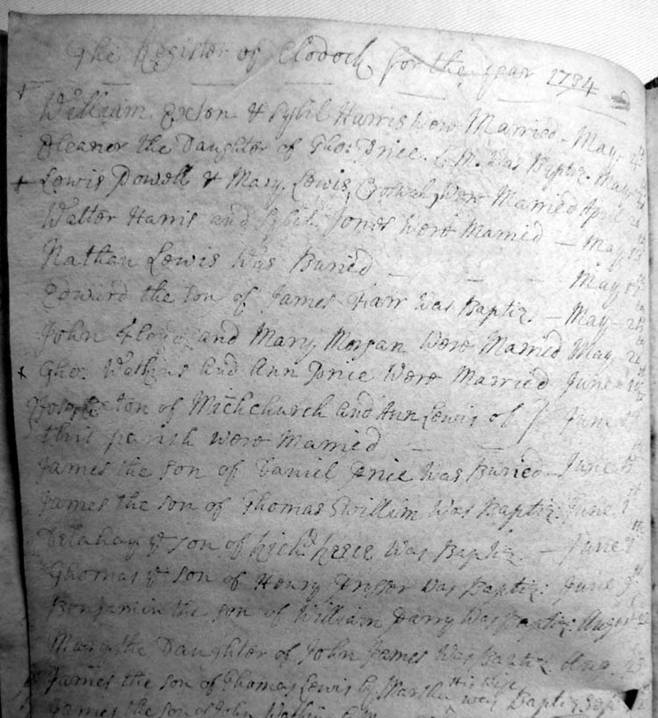 The Register of Clodock for the year 1734
William Exton & Sybil Harris were Married - May
Eleanor the Daughter of Tho: Price was Baptiz. May
Lewis Powell & Mary Lewis were Married April
Walter Harris and Sybil Jones were Married - May
Nathan Lewis was Buried - - - May
Edward the son of James Parr was Baptiz - May
John Floyd and Mary Morgan were Married May
Tho: Watkins and Ann Price were Married June
of Michchurch and Ann Lewis of June
this parish were Married - -
James the son of Daniel Price was Buried June
James the son of Thomas Gwillim was Baptiz: June
Delahay ye son of Rich: Reece was Baptiz. - June
Thomas ye son of Henry Prosser was Baptiz: June
Benjamin the son of William Parry was Baptiz: August
Mary the Daughter of John James was Baptiz Aug. 25
James the son of Thomas Lewis by Martha His Wife was Baptiz Sep
James the son of John Watkins